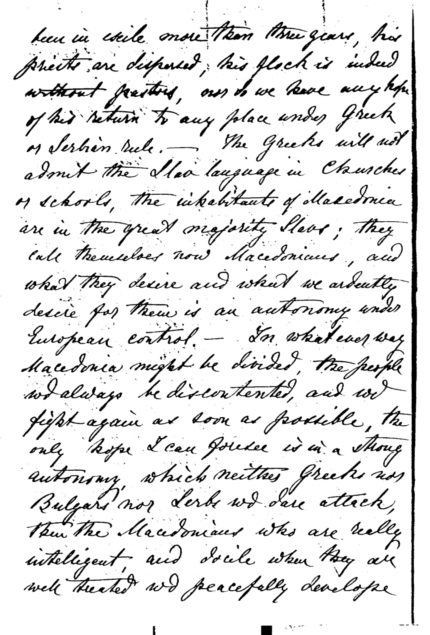 been in exile more than three years, his
priests are dispersed, his flock is indeed
without pastors, nor do we have any hope
of his return to any place under Greek
or Serbian rule. — The Greeks will not
admit the Slav language in Churches
or schools, the inhabitants of Macedonia
are in the great majority Slavs; they
call themselves now Macedonians, and
what they desire and what we ardently
desire for them is an autonomy under
European control. — In whatever way
Macedonia might be divided, the people
wd always be discontented, and wd
fight again as soon as possible, the
only hope I can foresee is in a strong
autonomy, which neither Greeks nor
Bulgars nor Serbs wd dare attack,
then the Macedonians who are really
intelligent, and docile when they are
well treated wd peacefully develope